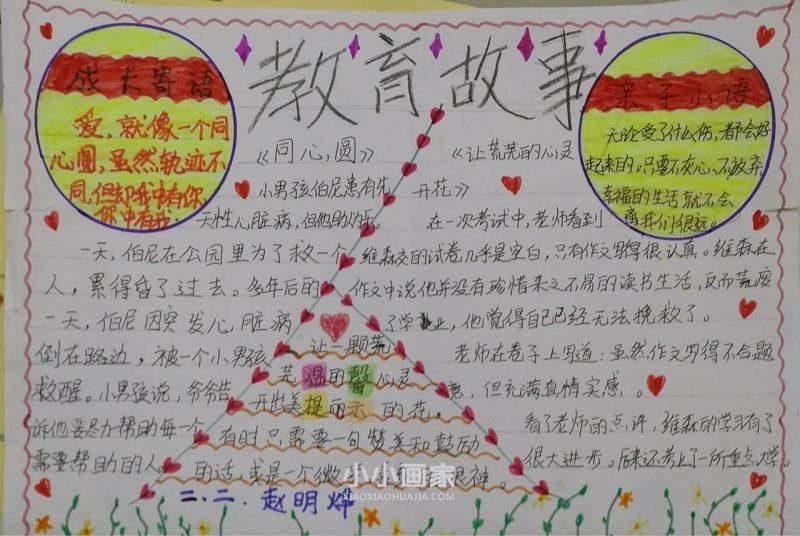 教育故事
成长寄语
爱,就像一个同
心圆,虽然轨迹不
同,但却我中有你,
你中有我。
亲子小语
无论受了什么伤,都会好
起来的。只要有决心、不放弃,
幸福的生活就不会
离我们很远。
《同心圆》
小男孩伯尼患有先
天性心脏病,但他助人为乐。
一天,伯尼在公园里为了救一个
人,累得昏了过去。多年后的
一天,伯尼因突发心脏病
倒在路边,被一个小男孩
救醒。小男孩说,爷爷告
诉他要尽力帮助每一个
需要帮助的人。
《让荒芜的心灵
开花》
在一次考试中,老师看到
维森交的试卷几乎是空白,只有作文写得很认真。维森在
作文中说他并没有珍惜来之不易的读书生活,反而荒废
了学业,他觉得自己已经无法挽救了。
老师在卷子上写道:虽然作文写得不合题
意,但充满真情实感。
看了老师的点评,维森的学习有了
很大进步。后来还考上了一所重点大学。
温馨
提示
让一颗荒
芜的心灵
开出美丽的花。
有时只需要一句赞美和鼓励
的话,或是一个微 眼神。
二.二.赵明烨
小小画家
XIAOXIAOHUAJIA.COM